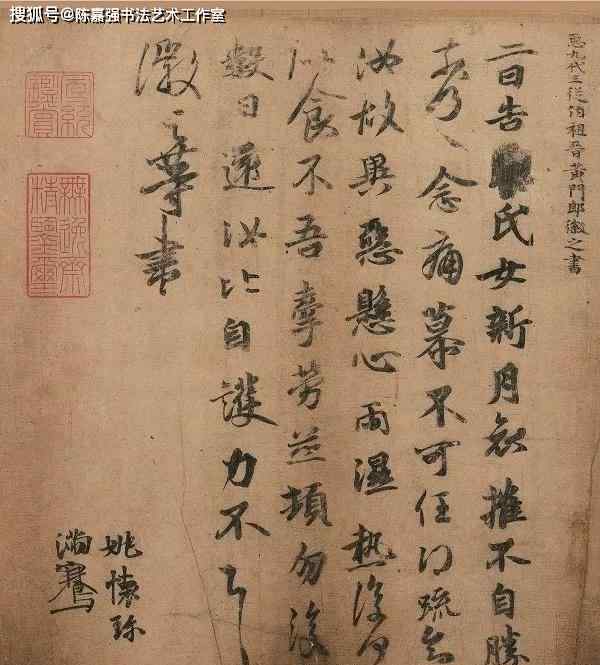 搜狐号@陈嘉强书法艺术工作室
臣九代三從伯祖晉黃門郎徽之書
二日告氏女新月哀摧不自勝
奈何奈何念痛慕不可任得疏知
汝故異惡懸心雨濕熱復何
似食不吾牽勞並頓勿復
數日還汝比自護力不具
徽之等書
姚懷珍
滿騫
宣統鑑賞
無逸齋精鑒璽